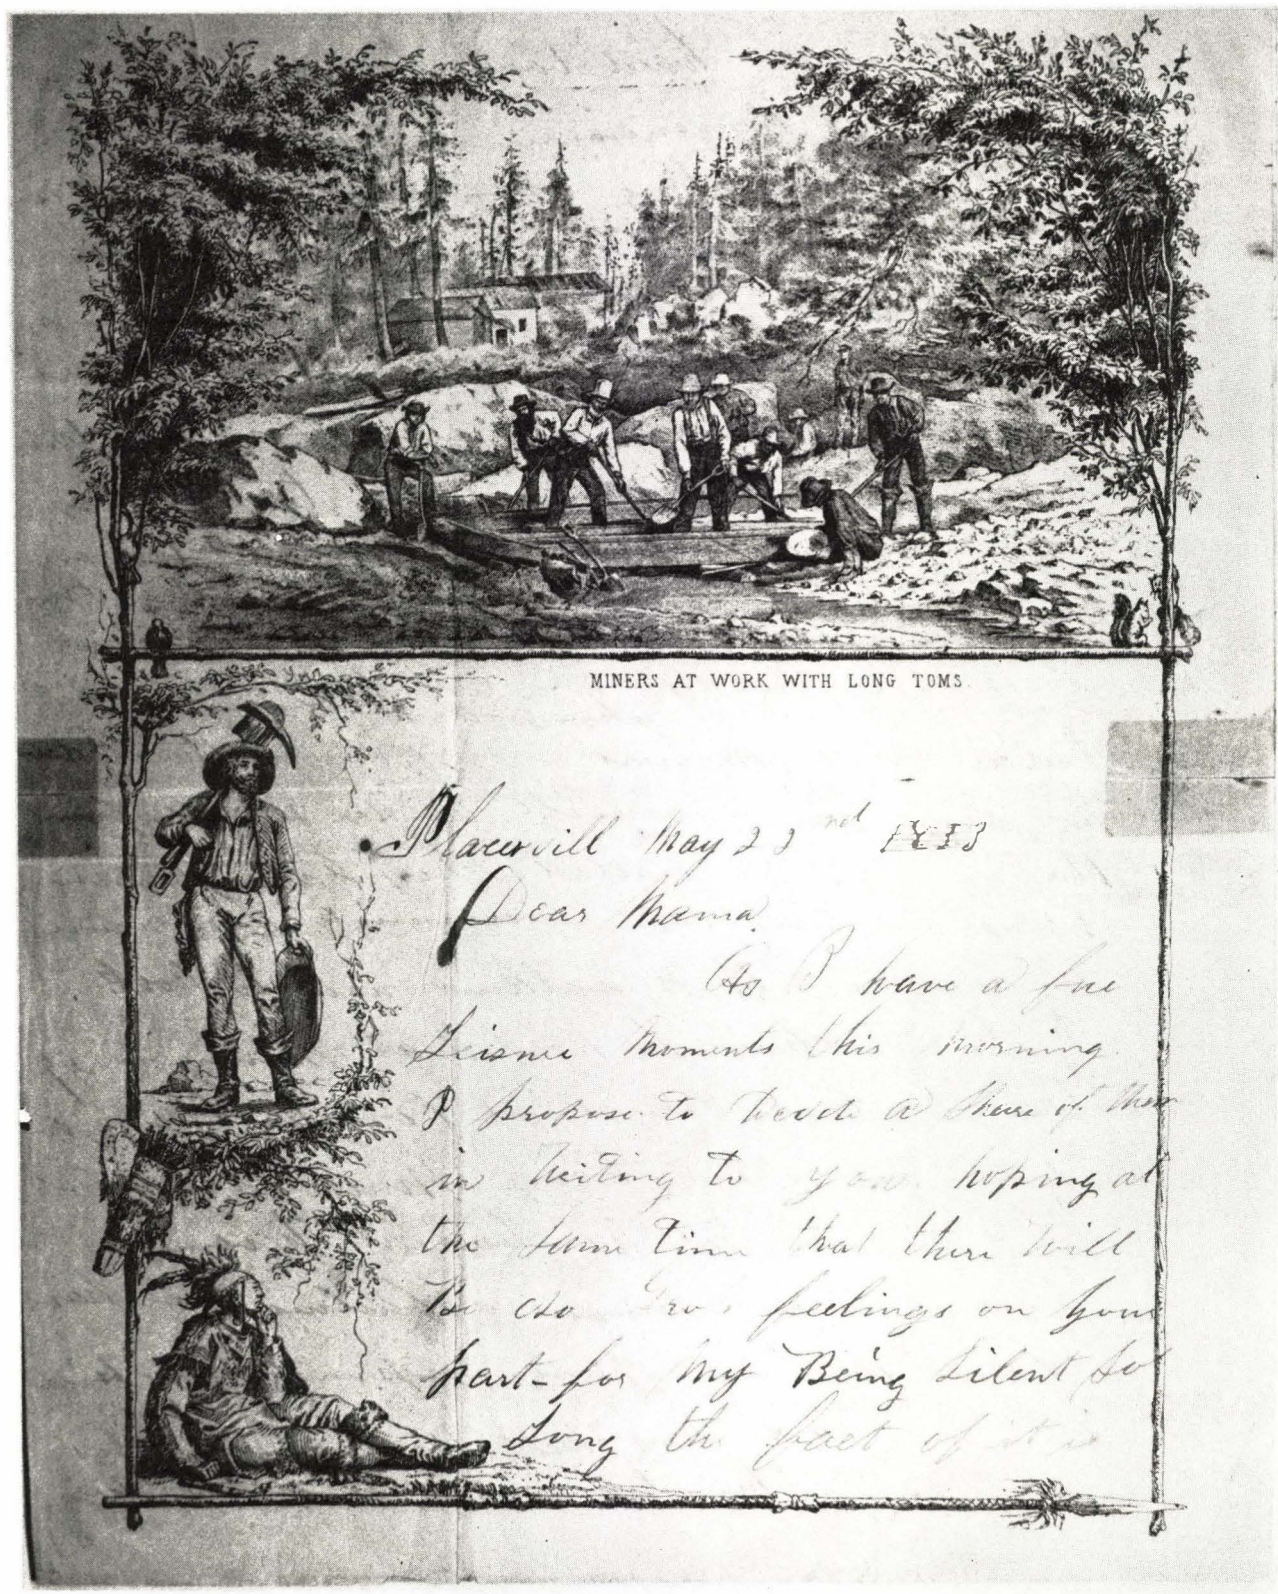 MINERS AT WORK WITH LONG TOMS.
Placervill May 22nd 1853
Dear Mama
As I have a fue
Leisure Moments this morning
I propose to Devote a Share of them
in Writing to you hoping at
the Same Time that there will
Be feelings on your
part for My Being Silent So
Long the fact of it is